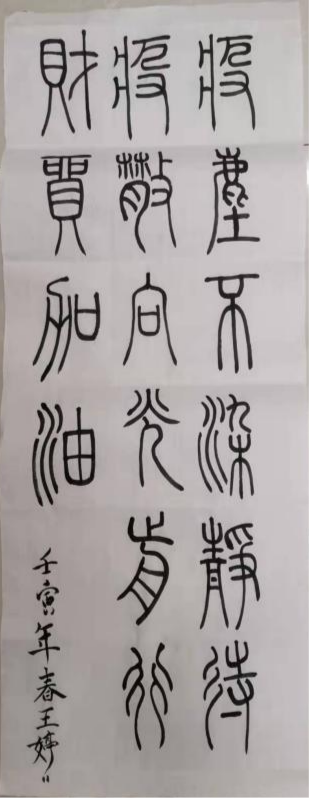 疫塵不染靜待
疫散向光前行
財貿加油
壬寅年春王婷